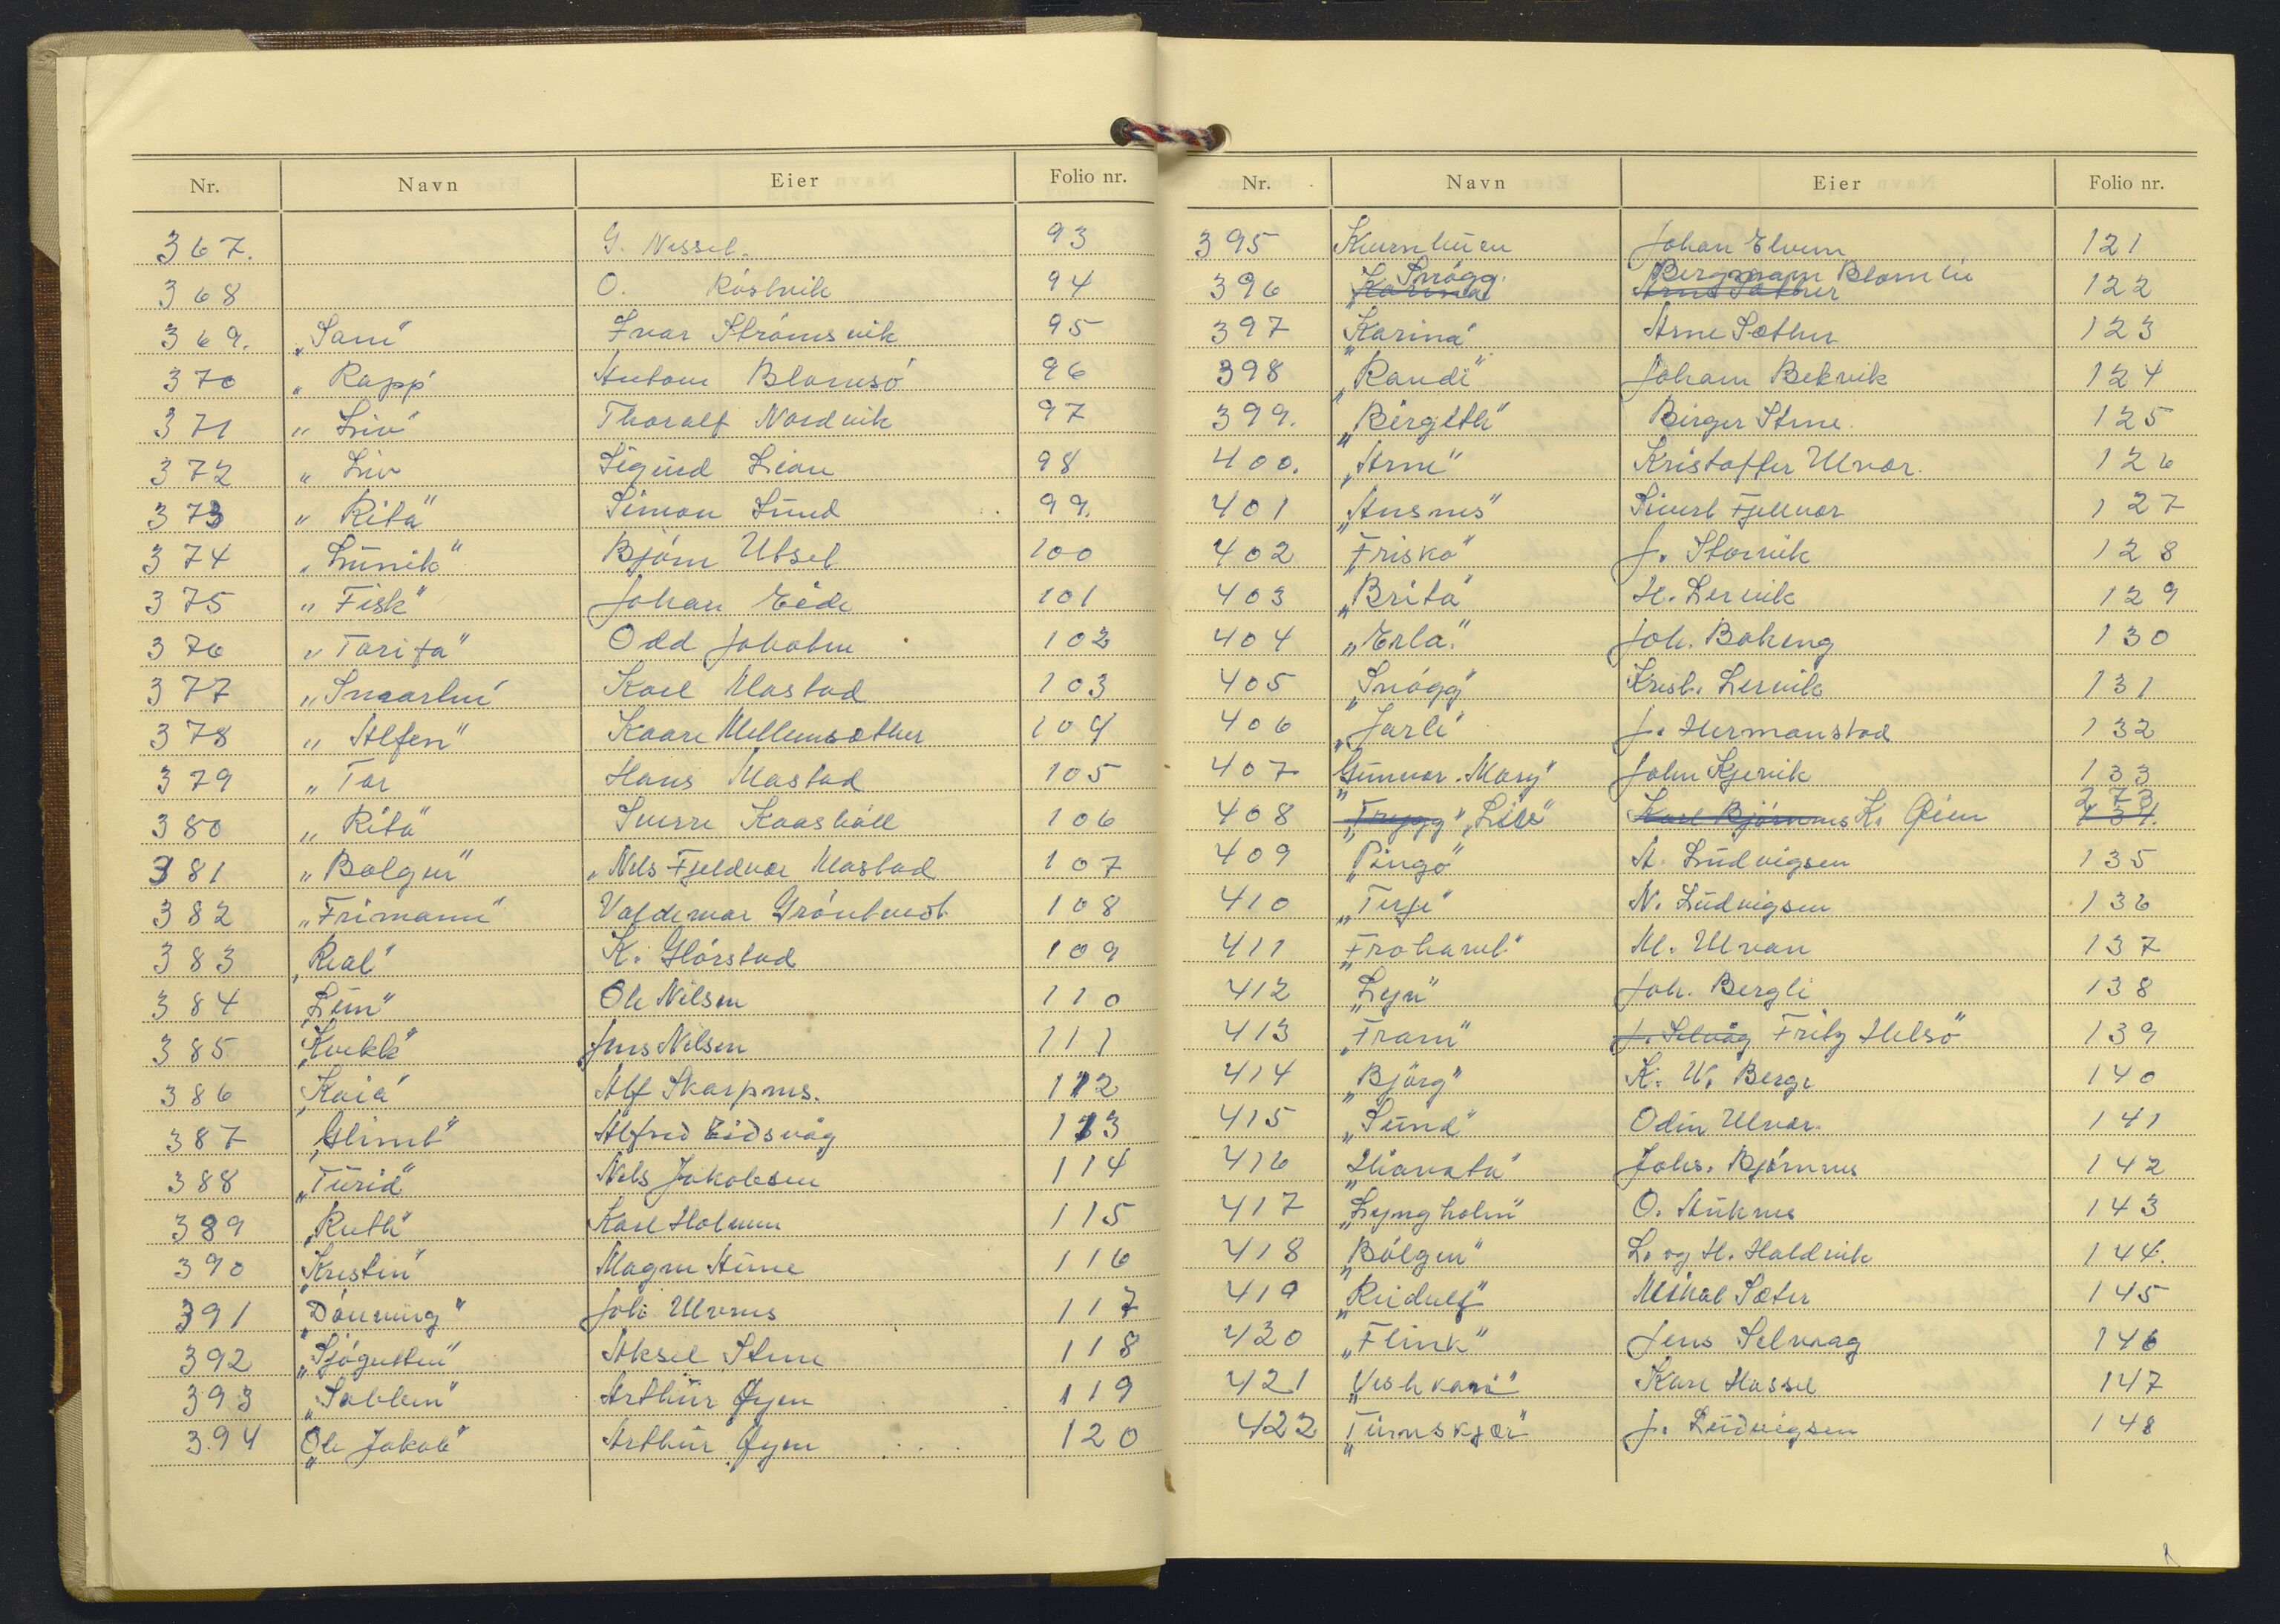 Nr. Navn Eier Folio nr.
367. G. Nessel. 93
368 O. Röstvik 94
369. „Sam" Ivar Strömsvik 95
370 „Rapp" Antoni Blomsö 96
371 „Liv" Thoralf Nordvik 97
372 „Liv Sigurd Lian 98
373 „Rita" Simon Sund 99.
374 „Lunik" Björn Utsel 100
375 „Fisk" Johan Eide 101
376 „Tarifa" Odd Joholm 102
377 „Smartin" Karl Mastad 103
378 „Alfen" Kaare Mellemsæther 104
379 „Tor Hans Mastad 105
380 „Rita" Sverre Kaasböll 106
381 „Bolgen" „Nils Fjeldvær Mastad 107
382 „Frimann" Valdemar Gröntvedt 108
383 „Real" K. Glörstad 109
384 „Lin" Ole Nilsen 110
385 „Kvekk" Jens Nilsen 111
386 „Kaia" Alf Skarpnes. 112
387 „Glimt" Alfred Eidsvåg 113
388 „Turid" Nils Jakobsen 114
389 „Ruth" Karl Holmen 115
390 „Kristin" Magne Aune 116
391 „Dönning" Joh. Ulvnes 117
392 „Sjögutten" Aksel Stene 118
393 „Sablen" Arthur Øyen 119
394 „Ole Jakob" Arthur Øyen 120
Nr. Navn Eier Folio nr.
395 Johan Elven 121
Snögg. Bergmann Blomlie
396 „Karina" Arne Sæther 122
397 „Karina" Arne Sæther 123
398 „Randi" Johan Bekvik 124
399. „Birgith" Birger Stene. 125
400. „Arne" Kristoffer Ulvær. 126
401 „Ansnes" Sivert Fjellvær 127
402 „Frisko" J. Storvik 128
403 „Brita" H. Lervik 129
404 „Erla." Joh. Bekeng 130
405 „Snögg" Krist. Lervik 131
406 „Jarli" J. Hermanstad 132
407 „Gunvor. Mary" John Kjervik 133
273
408 „Trygg" „Lill" Karl Björnnes K. Øien 134.
409 „Pingo" A. Ludvigsen 135
410 „Terje" N. Ludvigsen 136
411 „Frohavet" M. Ulvan 137
412 „Lyn" Joh. Bergli 138
413 „Fram" J. Selvåg Fritz Helsö 139
414 „Björg" K. W. Berge 140
415 „Sund" Odin Ulvær. 141
416 „Hiavata" Johs. Björnnes 142
417 „Lyngholm" O. Auknes 143
418 „Bölgen" L. og H. Haldvik 144.
419 „Reidulf" Mikal Sæter 145
420 „Flink" Jens Selvaag 146
421 Kare Hassel 147
422 „Turnskjær" J. Ludvigsen 148